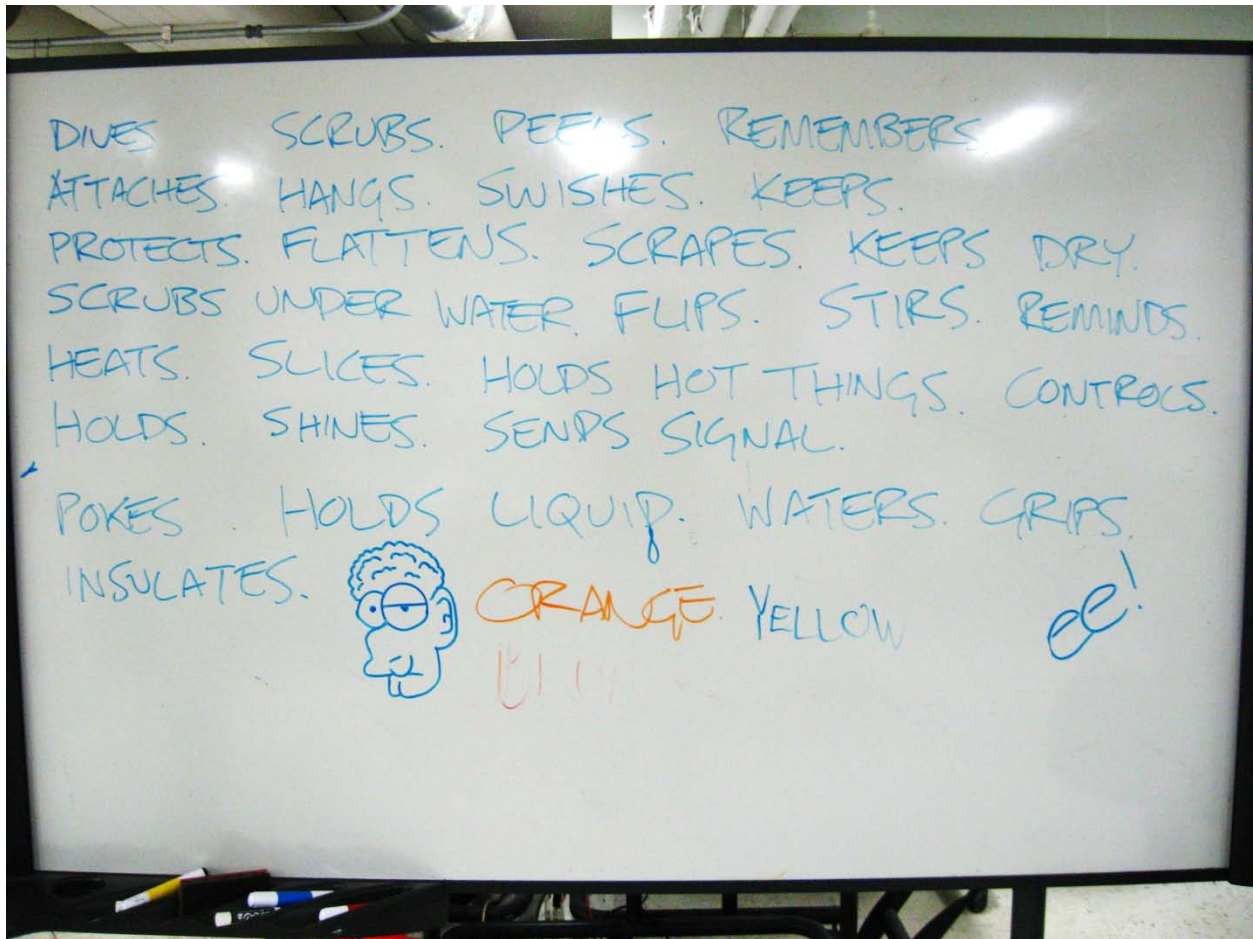 DIVES SCRUBS. PEELS. REMEMBERS
ATTACHES. HANGS. SWISHES. KEEPS.
PROTECTS. FLATTENS. SCRAPES. KEEPS DRY.
SCRUBS UNDER WATER. FLIPS. STIRS. REMINDS.
HEATS. SLICES. HOLDS HOT THINGS. CONTROLS.
HOLDS. SHINES. SENDS SIGNAL.
POKES. HOLDS LIQUID. WATERS. GRIPS.
INSULATES. ORANGE. YELLOW ee!